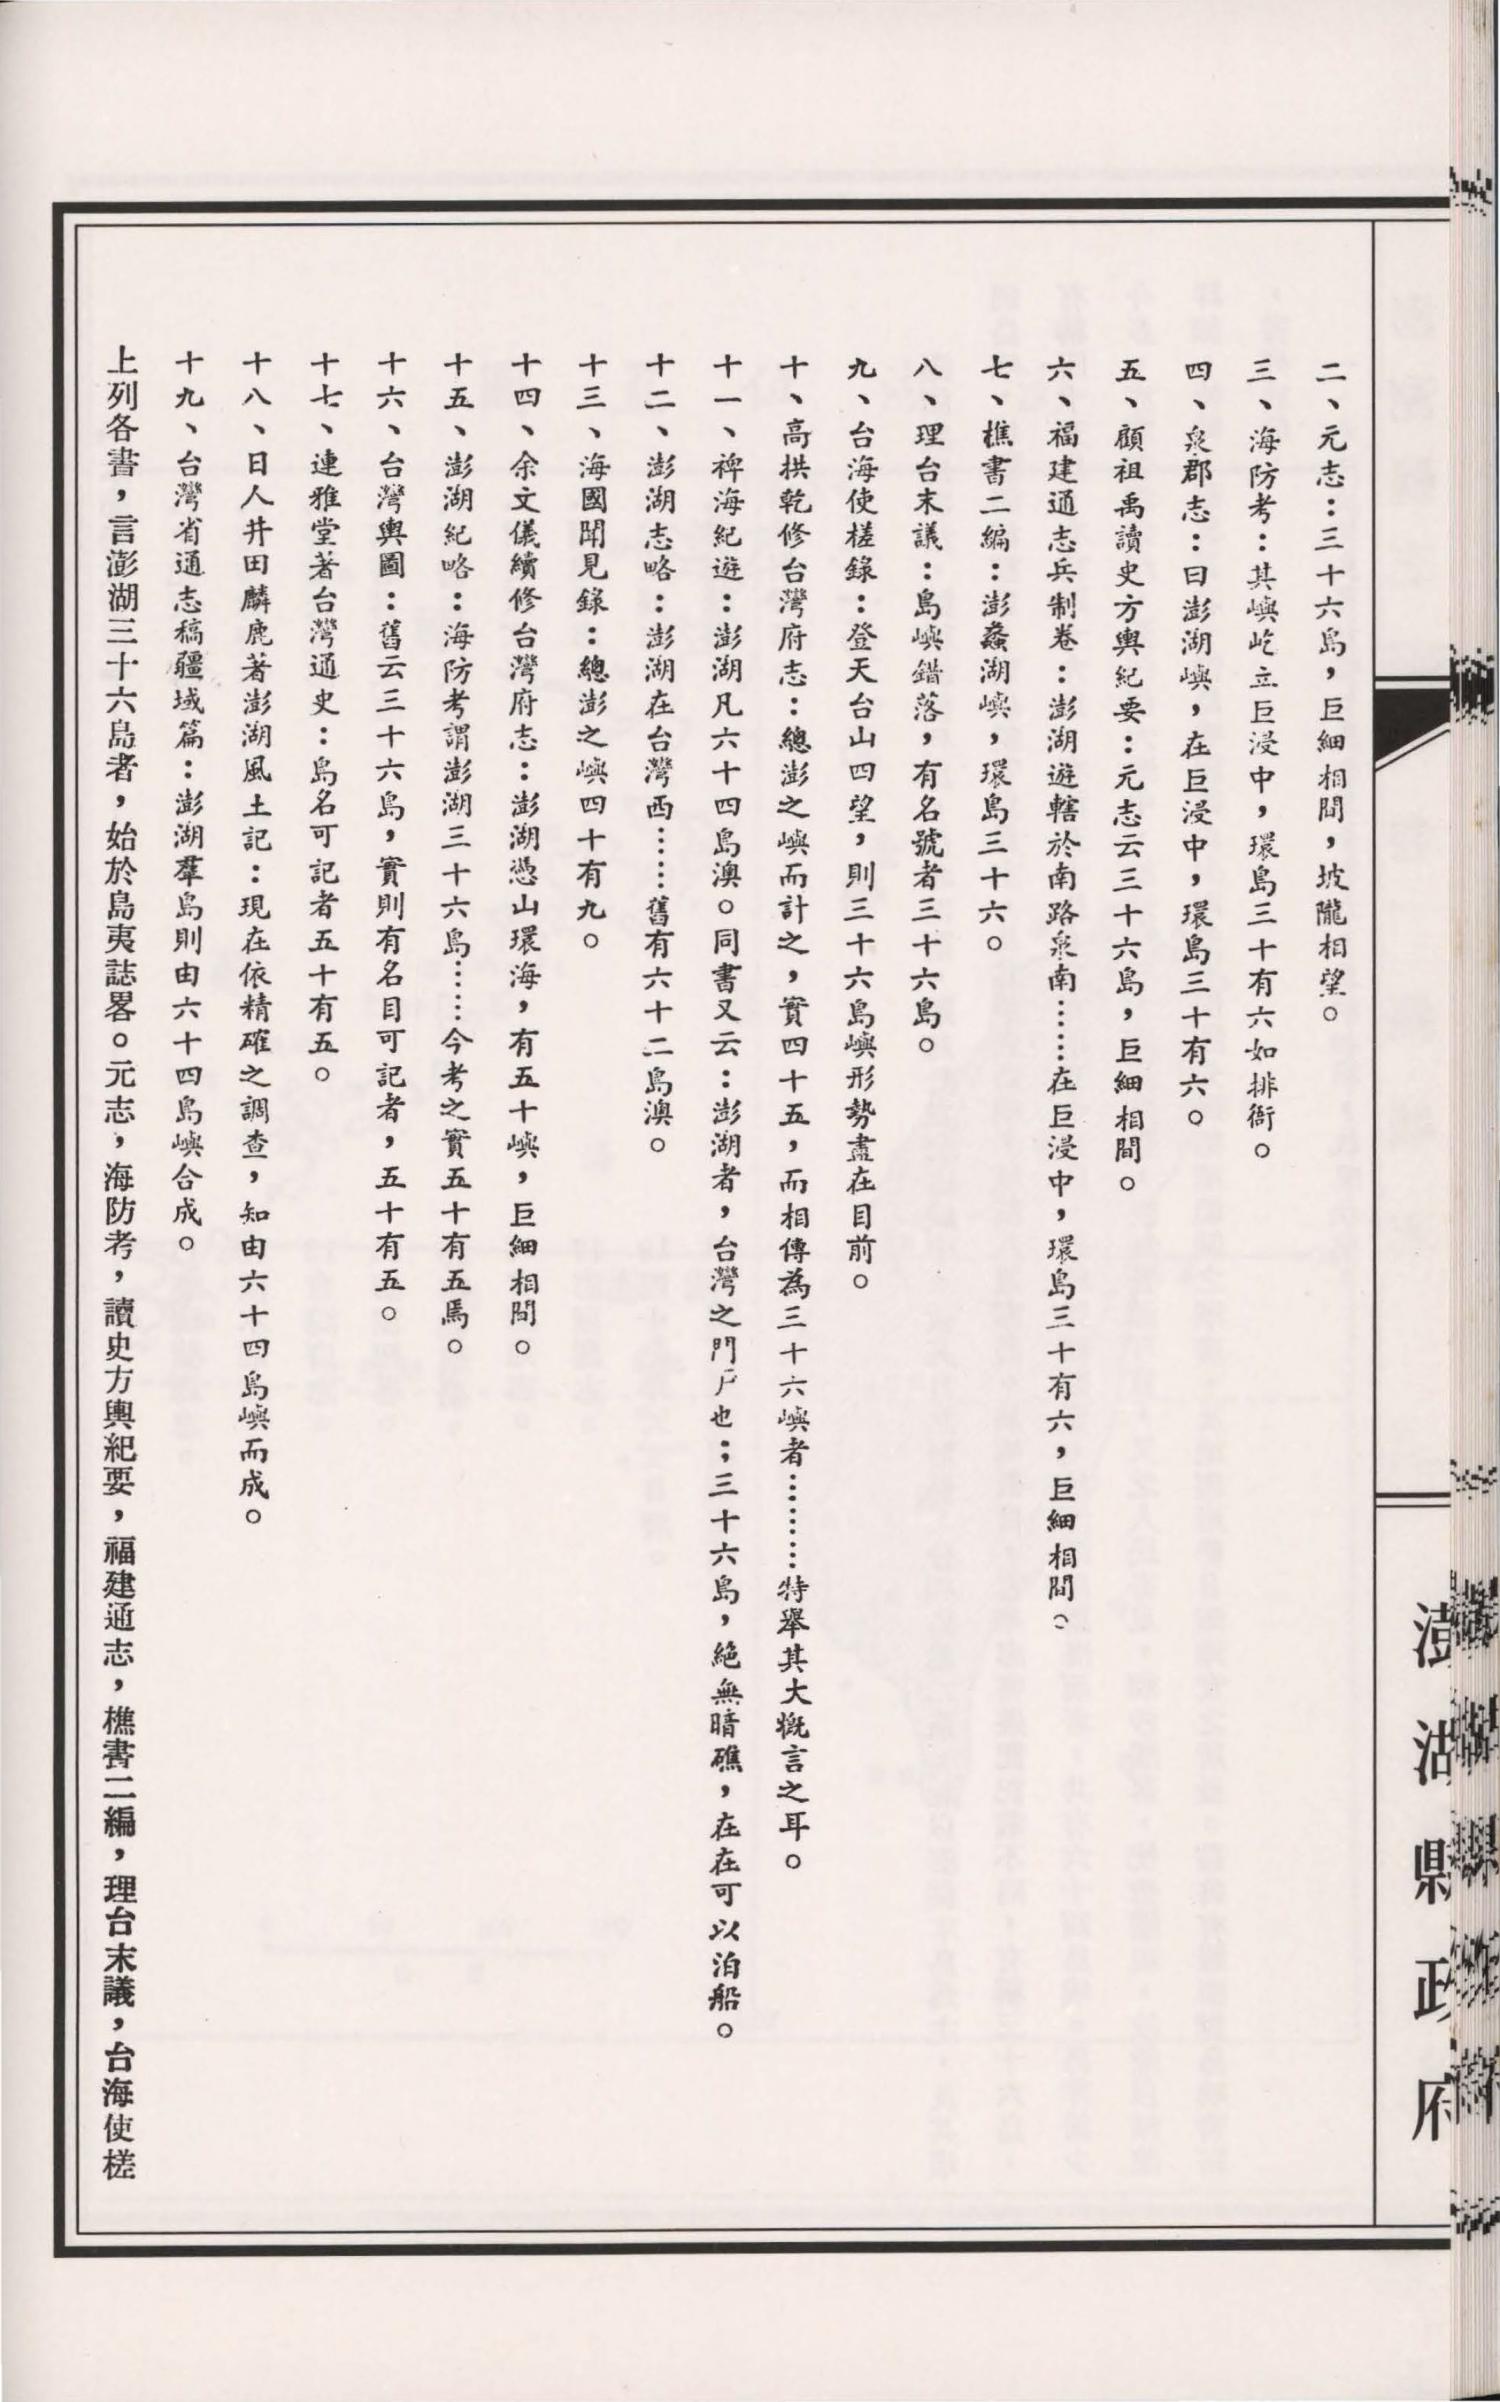 二、元志：三十六島，巨細相間，坡隴相望。
三、海防考：其嶼屹立巨浸中，環島三十有六如排衙。
四、泉郡志：曰澎湖嶼，在巨浸中，環島三十有六。
五、顧祖禹讀史方輿紀要：元志云三十六島，巨細相間。
六、福建通志兵制卷：澎湖遊轄於南路泉南……在巨浸中，環島三十有六，巨細相間。
七、樵書二編：澎蠡湖嶼，環島三十六。
八、理台末議：島嶼錯落，有名號者三十六島。
九、台海使槎錄：登天台山四望，則三十六島嶼形勢盡在目前。
十、高拱乾修台灣府志：總澎之嶼而計之，實四十五，而相傳為三十六嶼者………特舉其大概言之耳。
十一、裨海紀遊：澎湖凡六十四島澳。同書又云：澎湖者，台灣之門戶也；三十六島，絕無暗礁，在在可以泊船。
十二、澎湖志略：澎湖在台灣西……舊有六十二島澳。
十三、海國聞見錄：總澎之嶼四十有九。
十四、余文儀續修台灣府志：澎湖憑山環海，有五十嶼，巨細相間。
十五、澎湖紀略：海防考謂澎湖三十六島……今考之實五十有五焉。
十六、台灣輿圖：舊云三十六島，實則有名目可記者，五十有五。
十七、連雅堂著台灣通史：島名可記者五十有五。
十八、日人井田麟鹿著澎湖風土記：現在依精確之調查，知由六十四島嶼而成。
十九、台灣省通志稿疆域篇：澎湖羣島則由六十四島嶼合成。
上列各書，言澎湖三十六島者，始於島夷誌畧。元志，海防考，讀史方輿紀要，福建通志，樵書二編，理台末議，台海使槎
澎湖縣政府